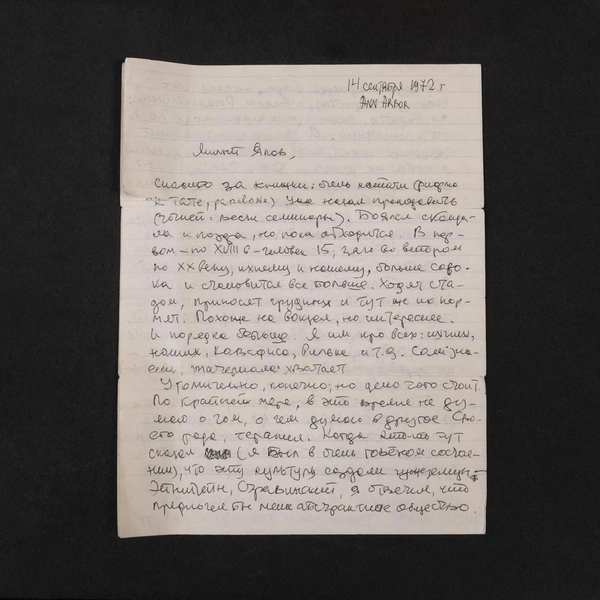 14 сентября 1972 г
ANN ARBOR
Милый Яков,
спасибо за книжки; очень кстати (
Уже начал преподавать
семинары). Боялся сканда-
ла и позора, но пока обходится. В пер-
вом — по XVIII в — человек 15, зато во втором
по XX веку, ихнему и нашему, больше соро-
ка и становится все больше. Ходят ста-
дом, приносят грудных и тут же их кор-
мят. Похоже на вокзал, но интереснее.
И порядка больше. Я им про всех: ихних,
наших, Кавафиса, Рильке и т.д.
материала хватает
Утомительно, конечно; но дело того стоит.
По крайней мере, в это время не ду-
маю о том, о чем думаю в другое. Сво-
его рода, терапия. Когда кто-то тут
сказал (я был в очень
что эту культуру создали чужеземцы —
Эйнштейн, Стравинский, я ответил, что
предпочел бы менее абстрактное общество.